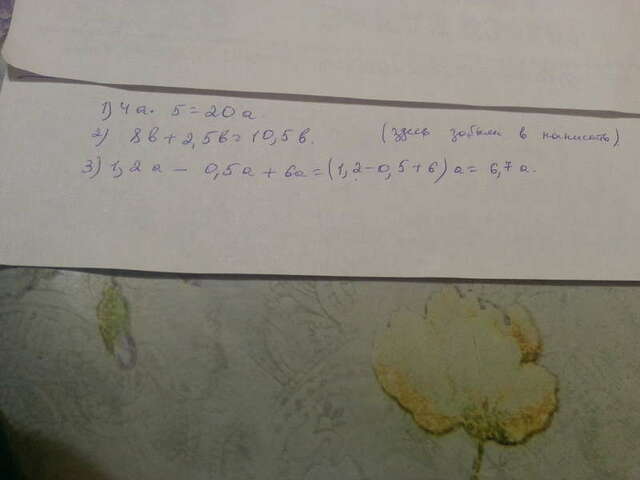 1) 4а. 5=20а.
2) 8в+2,5в=10,5в. (здесь забыли в написать)
3) 1,2а - 0,5а + 6а = (1,2-0,5+6) а = 6,7а.